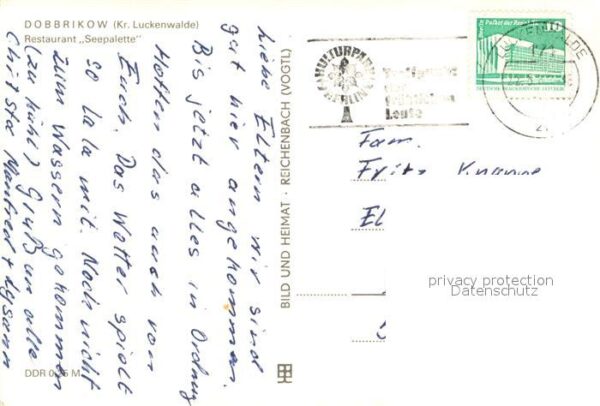 DOBBRIKOW (Kr. Luckenwalde)
Restaurant „Seepalette"
Liebe Eltern wir sind
gut hier angekommen.
Bis jetzt alles in Ordnung
Hoffen das auch von
Euch. Das Wetter spielt
so la la mit. Noch nicht
zum Wassern gekommen
(zu kühl) Gruß an alle
Christa Manfred +
DDR 0,25 M
BILD UND HEIMAT · REICHENBACH (VOGTL)
KULTURPARK
BERLIN
Treffpunkt
der
fröhlichen
Leute
10
LUCKENWALDE
Fam.
Fritz
privacy protection
Datenschutz